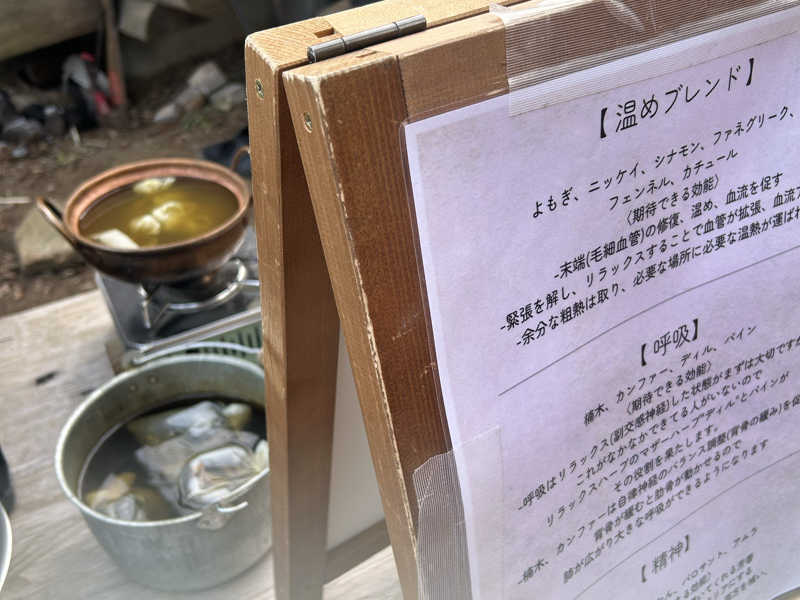 【温めブレンド】
よもぎ、ニッケイ、シナモン、ファネグリーク、
フェンネル、カチュール
〈期待できる効能〉
-末端(毛細血管)の修復、温め、血流を促す
-緊張を解し、リラックスすることで血管が拡張、血流
-余分な粗熱は取り、必要な場所に必要な温熱が運ばれ
【呼吸】
楠木、カンファー、ディル、パイン
〈期待できる効能〉
-呼吸はリラックス(副交感神経)した状態がまずは大切ですが
これがなかなかできてる人がいないので
リラックスハーブのマザーハーブ"ディル"とパインが
その役割を果たします。
-楠木、カンファーは自律神経のバランス調整(背骨の緩み)を促
背骨が緩むと肋骨が動かせるので
肺が広がり大きな呼吸ができるようになります
【精神】
パロサント、アムラ